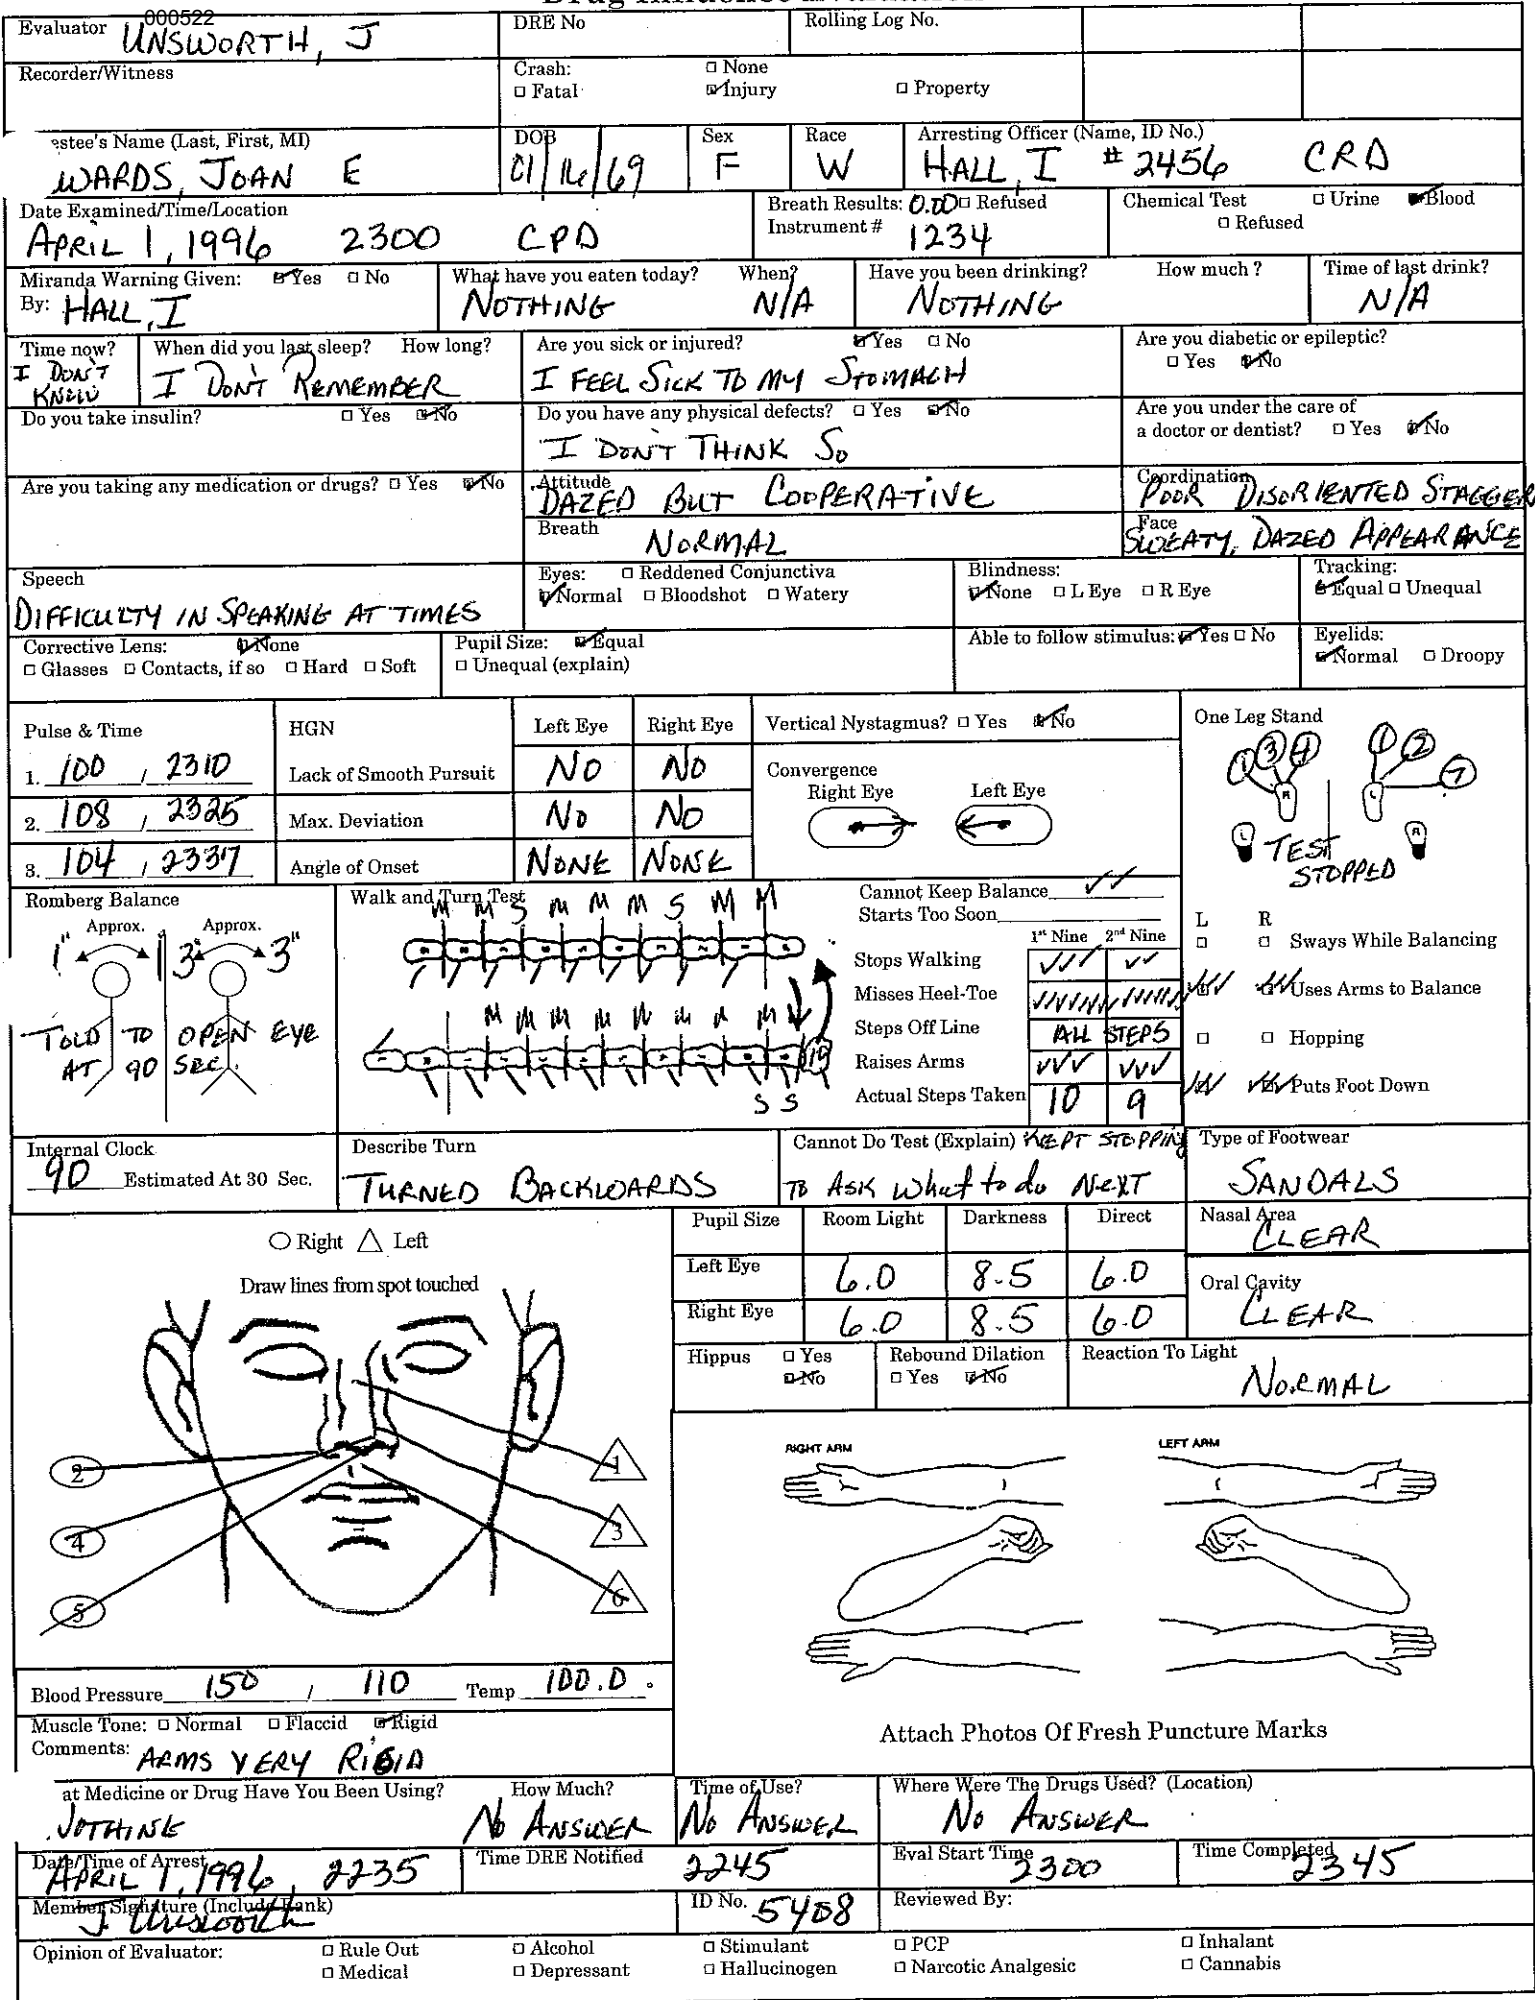 000522
Evaluator UNSWORTH, J
DRE No
Rolling Log No.
Recorder/Witness
Crash: □ None
□ Fatal ☑ Injury □ Property
estee's Name (Last, First, MI)
WARDS, JOAN E
DOB
01/16/69
Sex
F
Race
W
Arresting Officer (Name, ID No.)
HALL, I #2456 CRD
Date Examined/Time/Location
APRIL 1, 1996 2300 CPD
Breath Results: 0.00 □ Refused
Instrument # 1234
Chemical Test □ Urine ☑ Blood
□ Refused
Miranda Warning Given: ☑ Yes □ No
By: HALL, I
What have you eaten today? When?
NOTHING N/A
Have you been drinking? How much ?
NOTHING
Time of last drink?
N/A
Time now?
I DON'T
KNOW
When did you last sleep? How long?
I DON'T REMEMBER
Are you sick or injured? ☑ Yes □ No
I FEEL SICK TO MY STOMACH
Are you diabetic or epileptic?
□ Yes ☑ No
Do you take insulin? □ Yes ☑ No
Do you have any physical defects? □ Yes ☑ No
I DON'T THINK SO
Are you under the care of
a doctor or dentist? □ Yes ☑ No
Are you taking any medication or drugs? □ Yes ☑ No
Attitude
DAZED BUT COOPERATIVE
Coordination
POOR DISORIENTED STAGGER
Breath
NORMAL
Face
SWEATY, DAZED APPEARANCE
Speech
DIFFICULTY IN SPEAKING AT TIMES
Eyes: □ Reddened Conjunctiva
☑ Normal □ Bloodshot □ Watery
Blindness:
☑ None □ L Eye □ R Eye
Tracking:
☑ Equal □ Unequal
Corrective Lens: ☑ None
□ Glasses □ Contacts, if so □ Hard □ Soft
Pupil Size: ☑ Equal
□ Unequal (explain)
Able to follow stimulus: ☑ Yes □ No
Eyelids:
☑ Normal □ Droopy
Pulse & Time
1. 100 / 2310
2. 108 / 2325
3. 104 / 2337
HGN Left Eye Right Eye
Lack of Smooth Pursuit NO NO
Max. Deviation NO NO
Angle of Onset NONE NONE
Vertical Nystagmus? □ Yes ☑ No
Convergence
Right Eye Left Eye
One Leg Stand
1 3 4 1 2 7
R L
L R
TEST
STOPPED
Romberg Balance
Approx. Approx.
1" 1 3" 3"
TOLD TO OPEN EYE
AT 90 SEC.
Walk and Turn Test
M M S M M M S M M
M M M M M M M M
19
S S
Cannot Keep Balance ✓✓
Starts Too Soon
1st Nine 2nd Nine
Stops Walking ✓✓✓ ✓✓
Misses Heel-Toe
Steps Off Line ALL STEPS
Raises Arms ✓✓✓ ✓✓✓
Actual Steps Taken 10 9
L R
□ □ Sways While Balancing
✓✓✓ ✓✓✓ Uses Arms to Balance
□ □ Hopping
✓✓✓ ✓✓✓ Puts Foot Down
Internal Clock
90 Estimated At 30 Sec.
Describe Turn
TURNED BACKWARDS
Cannot Do Test (Explain) KEPT STOPPING
TO ASK What to do NEXT
Type of Footwear
SANDALS
○ Right △ Left
Draw lines from spot touched
2 4 5
1 3 6
Pupil Size Room Light Darkness Direct
Left Eye 6.0 8.5 6.0
Right Eye 6.0 8.5 6.0
Nasal Area
CLEAR
Oral Cavity
CLEAR
Hippus □ Yes
☑ No
Rebound Dilation
□ Yes ☑ No
Reaction To Light
NORMAL
RIGHT ARM
LEFT ARM
Attach Photos Of Fresh Puncture Marks
Blood Pressure 150 / 110 Temp 100.0 °
Muscle Tone: □ Normal □ Flaccid ☑ Rigid
Comments: ARMS VERY RIGID
at Medicine or Drug Have You Been Using? How Much?
NOTHING NO ANSWER
Time of Use?
NO ANSWER
Where Were The Drugs Used? (Location)
NO ANSWER
Date/Time of Arrest
APRIL 1, 1996, 2235
Time DRE Notified
2245
Eval Start Time
2300
Time Completed
2345
Member Signature (Include Rank)
J Unsworth
ID No. 5408
Reviewed By:
Opinion of Evaluator: □ Rule Out □ Alcohol □ Stimulant □ PCP □ Inhalant
□ Medical □ Depressant □ Hallucinogen □ Narcotic Analgesic □ Cannabis